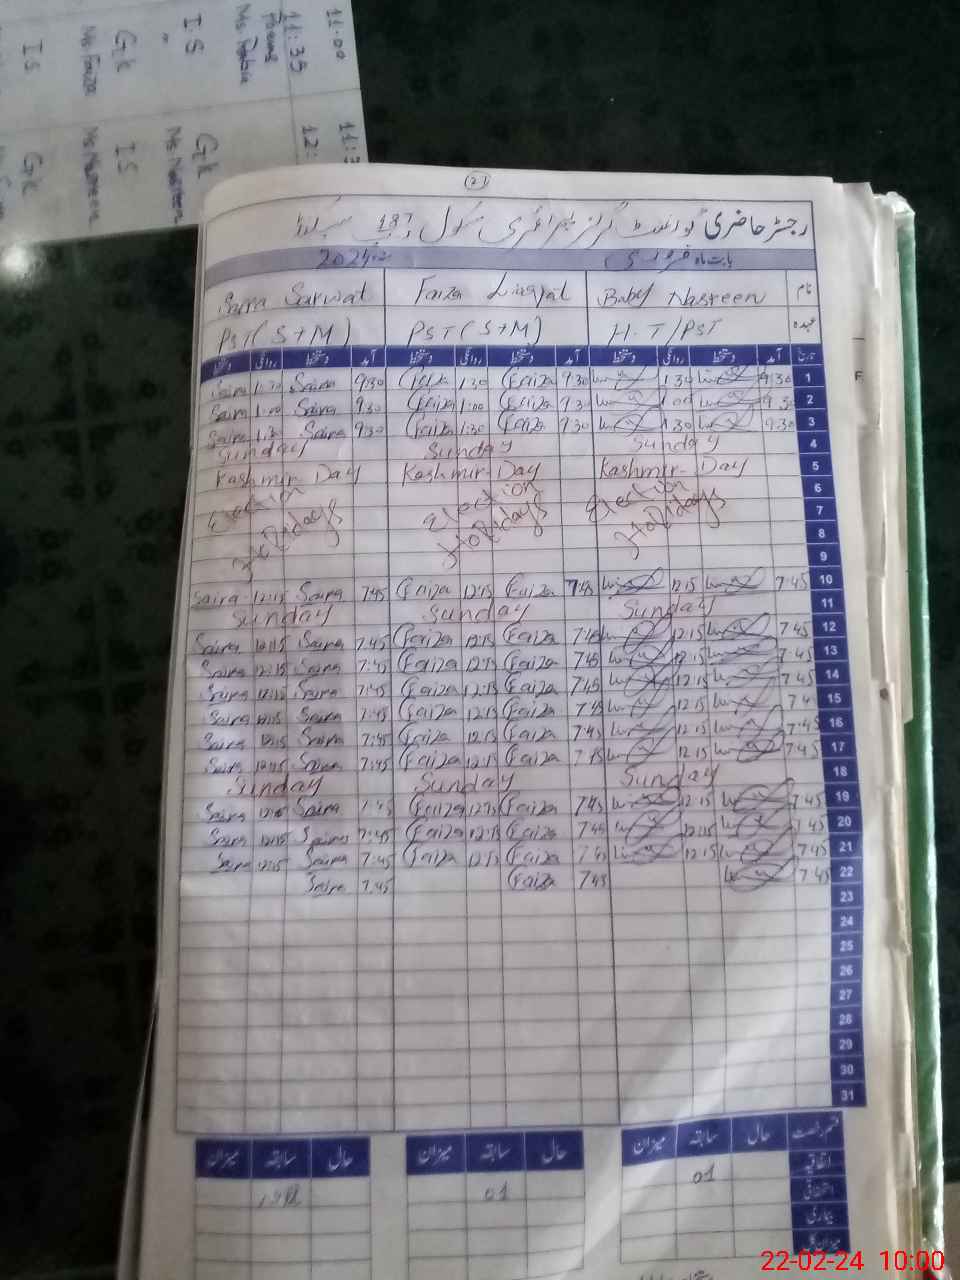 11:00
11:35
Ms Rabia
I.S
Gk
Ms Faiza
I.S
12:
Gk
Ms Nasreen
I.S
Ms Nasreen
Gk
21
رجسٹر حاضری گورنمنٹ گرلز پرائمری سکول 187
بابت ماہ فروری 2024ء
نام Baby Nasreen Faiza Liaqat Saira Sarwat
عہدہ H.T/PST PST(S+M) PST(S+M)
تاریخ آمد دستخط روانگی دستخط آمد دستخط روانگی دستخط آمد دستخط روانگی دستخط
Saira 1:30 Saira 9:30 Faiza 1:30 Faiza 9:30 1:30 9:30 1
Saira 1:00 Saira 9:30 Faiza 1:00 Faiza 9:30 1:00 9:30 2
Saira 1:30 Saira 9:30 Faiza 1:30 Faiza 9:30 1:30 9:30 3
Sunday Sunday Sunday 4
Kashmir Day Kashmir-Day Kashmir-Day 5
Election Election Election 6
Holidays Holidays Holidays 7
8
9
Saira 12:15 Saira 7:45 Faiza 12:15 Faiza 7:45 12:15 7:45 10
Sunday Sunday Sunday 11
Saira 12:15 Saira 7:45 Faiza 12:15 Faiza 7:45 12:15 7:45 12
Saira 12:15 Saira 7:45 Faiza 12:15 Faiza 7:45 12:15 7:45 13
Saira 12:15 Saira 7:45 Faiza 12:15 Faiza 7:45 12:15 7:45 14
Saira 12:15 Saira 7:45 Faiza 12:15 Faiza 7:45 12:15 7:4 15
Saira 12:15 Saira 7:45 Faiza 12:15 Faiza 7:45 12:15 7:45 16
Saira 12:15 Saira 7:45 Faiza 12:15 Faiza 7:45 12:15 7:45 17
Sunday Sunday Sunday 18
Saira 12:15 Saira 7:45 Faiza 12:15 Faiza 7:45 12:15 7:45 19
Saira 12:15 Saira 7:45 Faiza 12:15 Faiza 7:45 12:15 7:45 20
Saira 12:15 Saira 7:45 Faiza 12:15 Faiza 7:45 12:15 7:45 21
Saira 7:45 Faiza 7:45 7:45 22
23
24
25
26
27
28
29
30
31
قسم رخصت حال سابقہ میزان حال سابقہ میزان حال سابقہ میزان
اتفاقیہ 01
استحقاقی 01
بیماری
میزان کل
22-02-24 10:00